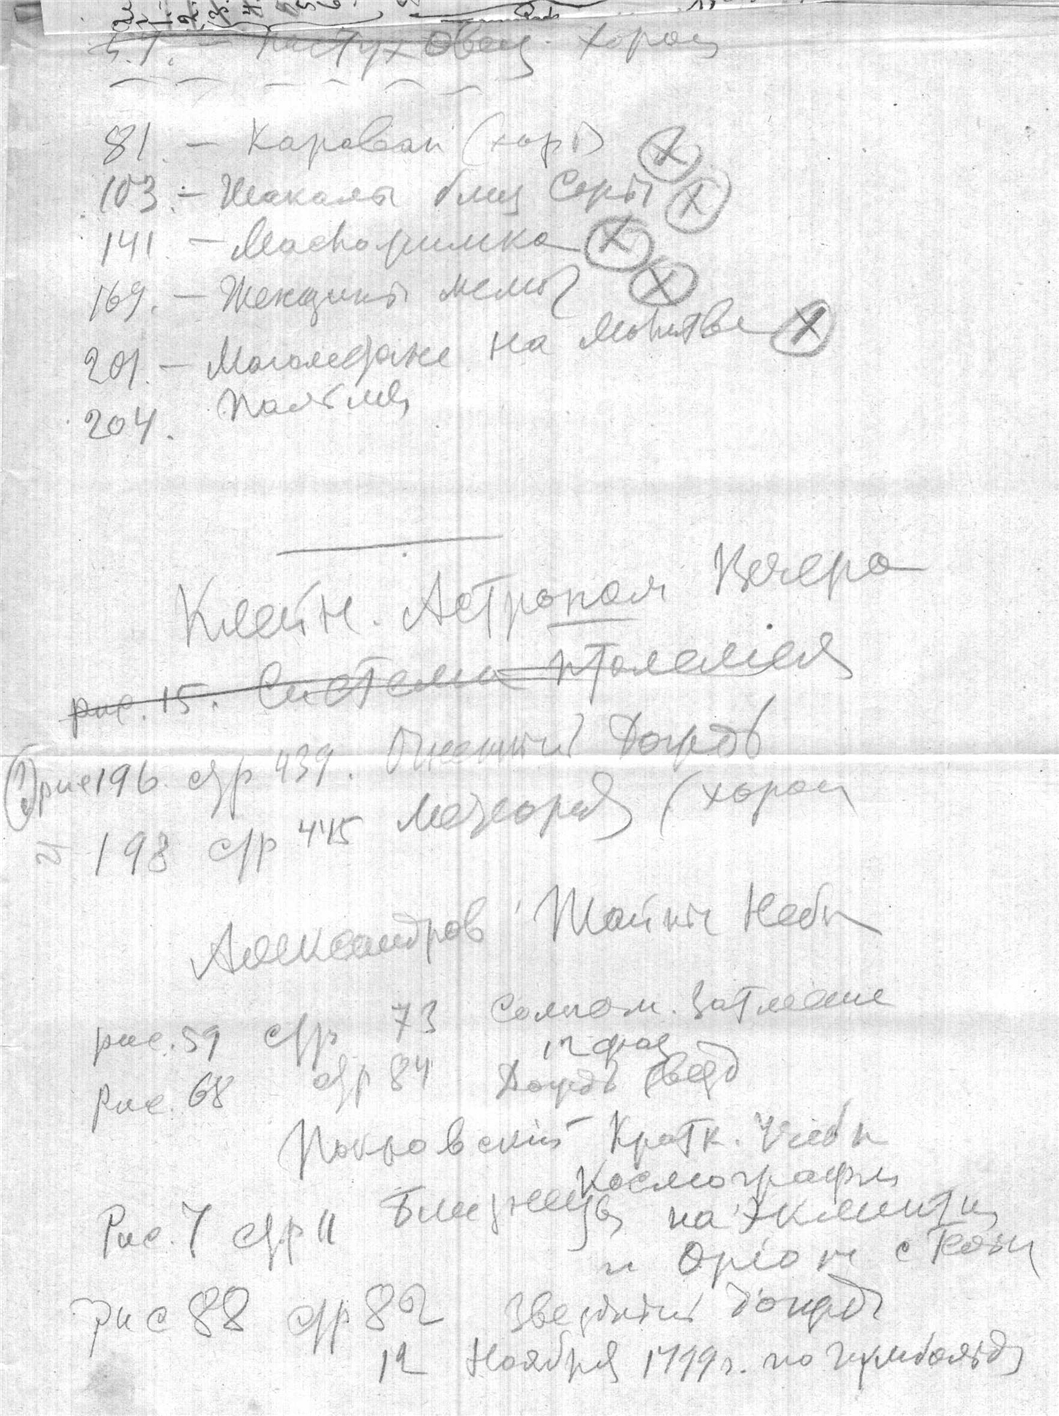 57. – Пастух овец. хорош
81. – Караван (хорош)
103. – Шакалы близ
141 –
169. – Женщины
201. – Магометане на молитве
204.
Клейн. Астроном Вечера
рис. 15. Система Птолемея
рис 196 стр 439. Огненный Дождь
198 стр 445 Метеоры (хорош
Александров Тайны Неба
рис. 59 стр 73 Солнечн. Затмение
Рис. 68 стр 84 Дождь звезд
Покровский Кратк. Учебн
Космографии
Рис. 7 стр 11 Близнецы на Эклиптик
и Орион с
рис 88 стр 82 Звездный дождь
12 Ноября 1799 г. по Гумбольду